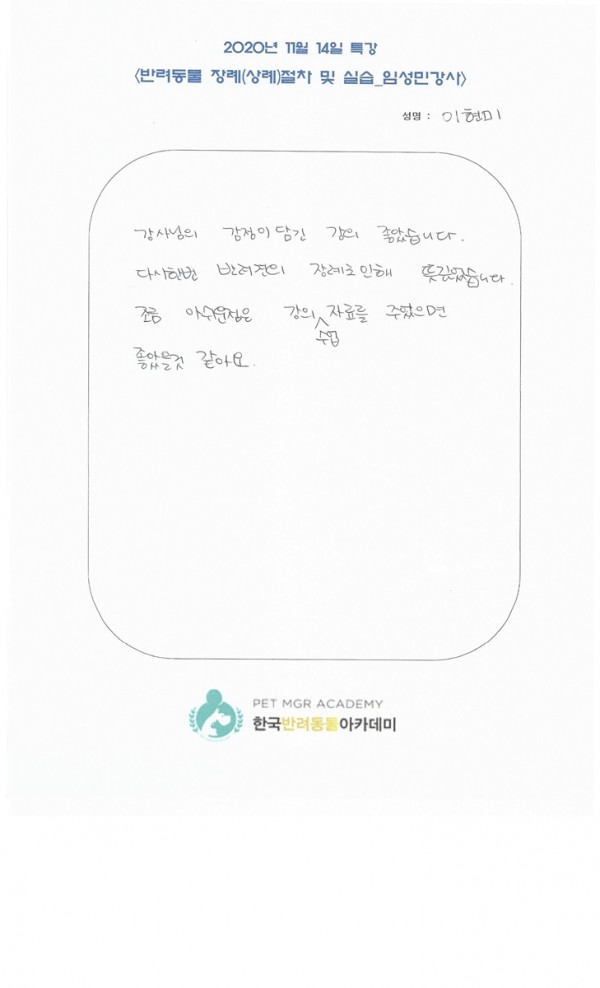 2020년 11월 14일 특강
<반려동물 장례(상례)절차 및 실습_임성민강사>
성명 : 이현미
강사님의 감정이 담긴 강의 좋았습니다.
다시한번 반려견의 장례로 인해 뜻깊었습니다.
조금 아쉬운점은 강의 자료를 주셨으면
수업
좋았을것 같아요.
PET MGR ACADEMY
한국반려동물아카데미